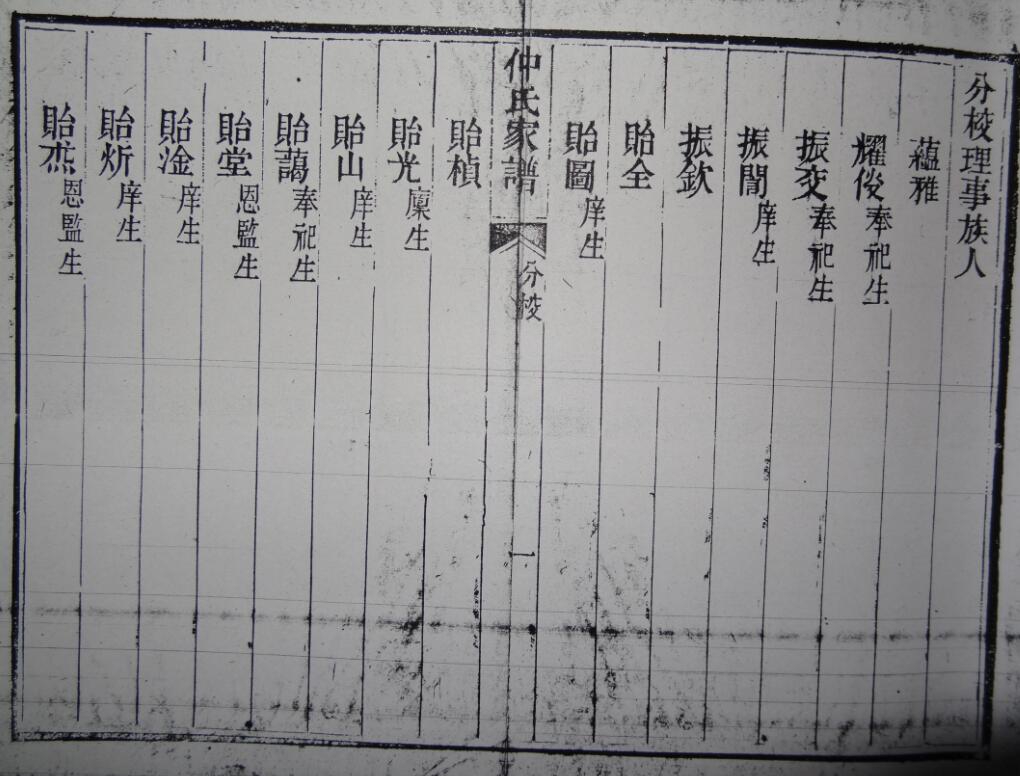 分校理事族人
蘊雅
耀俊奉祀生
振奕奉祀生
振誾庠生
振欽
貽全
貽圖庠生
仲氏家譜
分校
一
貽楨
貽光廩生
貽山庠生
貽藹奉祀生
貽堂恩監生
貽淦庠生
貽炘庠生
貽杰恩監生